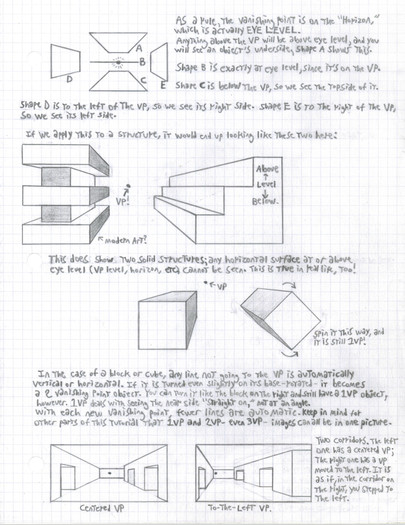 As a rule, the vanishing point is on the "Horizon,"
which is actually EYE LEVEL.
Anything above the VP will be above eye level, and you
will see an object's underside; shape A shows this.
A
B
C
D
E
Shape B is exactly at eye level, since it's on the VP.
Shape C is below the VP, so we see the topside of it.
Shape D is to the left of the VP, so we see its right side. Shape E is to the right of the VP,
so we see its left side.
If we apply this to a structure, it would end up looking like these two here:
VP!
Modern Art?
Above
Level
Below.
This does show two solid structures; any horizontal surface at or above
eye level (VP level, horizon, etc) cannot be seen. This is true in real life, too!
VP
Spin it this way, and
it is still 1VP!
In the case of a block or cube, any line not going to the VP is automatically
vertical or horizontal. If it is turned even slightly on its base-rotated- it becomes
a 2 vanishing point object. You can turn it like the block on the right and still have a 1VP object,
however. 1VP deals with seeing the near side "straight on," not at an angle.
With each new vanishing point, fewer lines are automatic. Keep in mind for
other parts of this tutorial that 1VP and 2VP- even 3VP- images can all be in one picture.
Two corridors. The left
one has a centered VP;
the right one has a VP
moved to the left. It is
as if, in the corridor on
the right, you stepped to
the left.
Centered VP
To-The-Left VP.